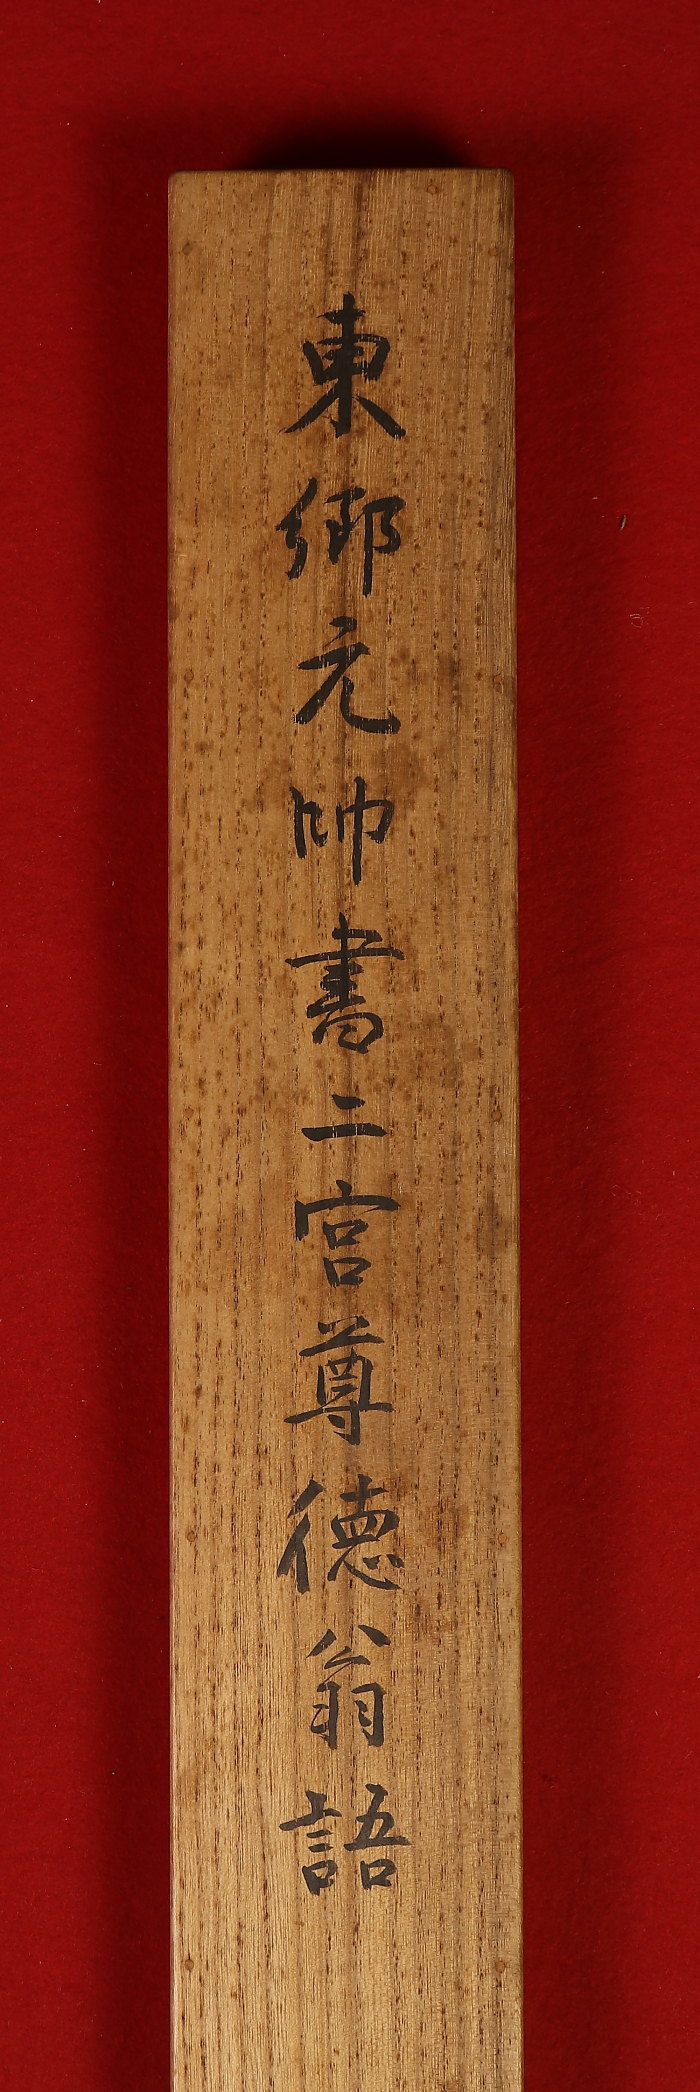 東郷元帥書二宮尊徳翁語